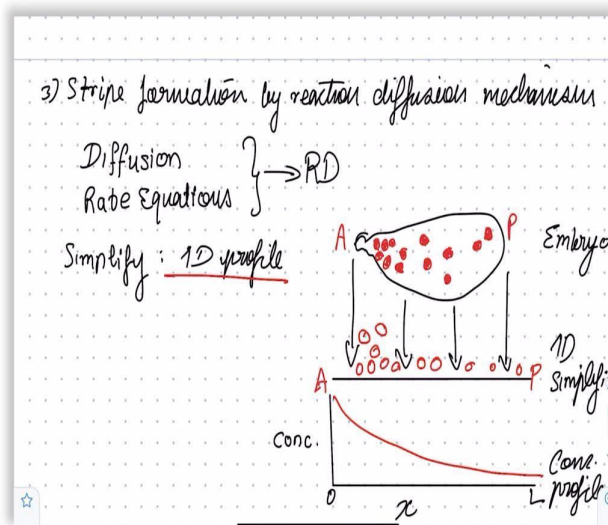 3) Stripe formation by reaction diffusion mechanism
Diffusion
Rate Equations
→ RD
Simplify : 1D profile
A
P
Embryo
1D
Simplifi
A
P
Conc.
Conc.
profile
0
x
L